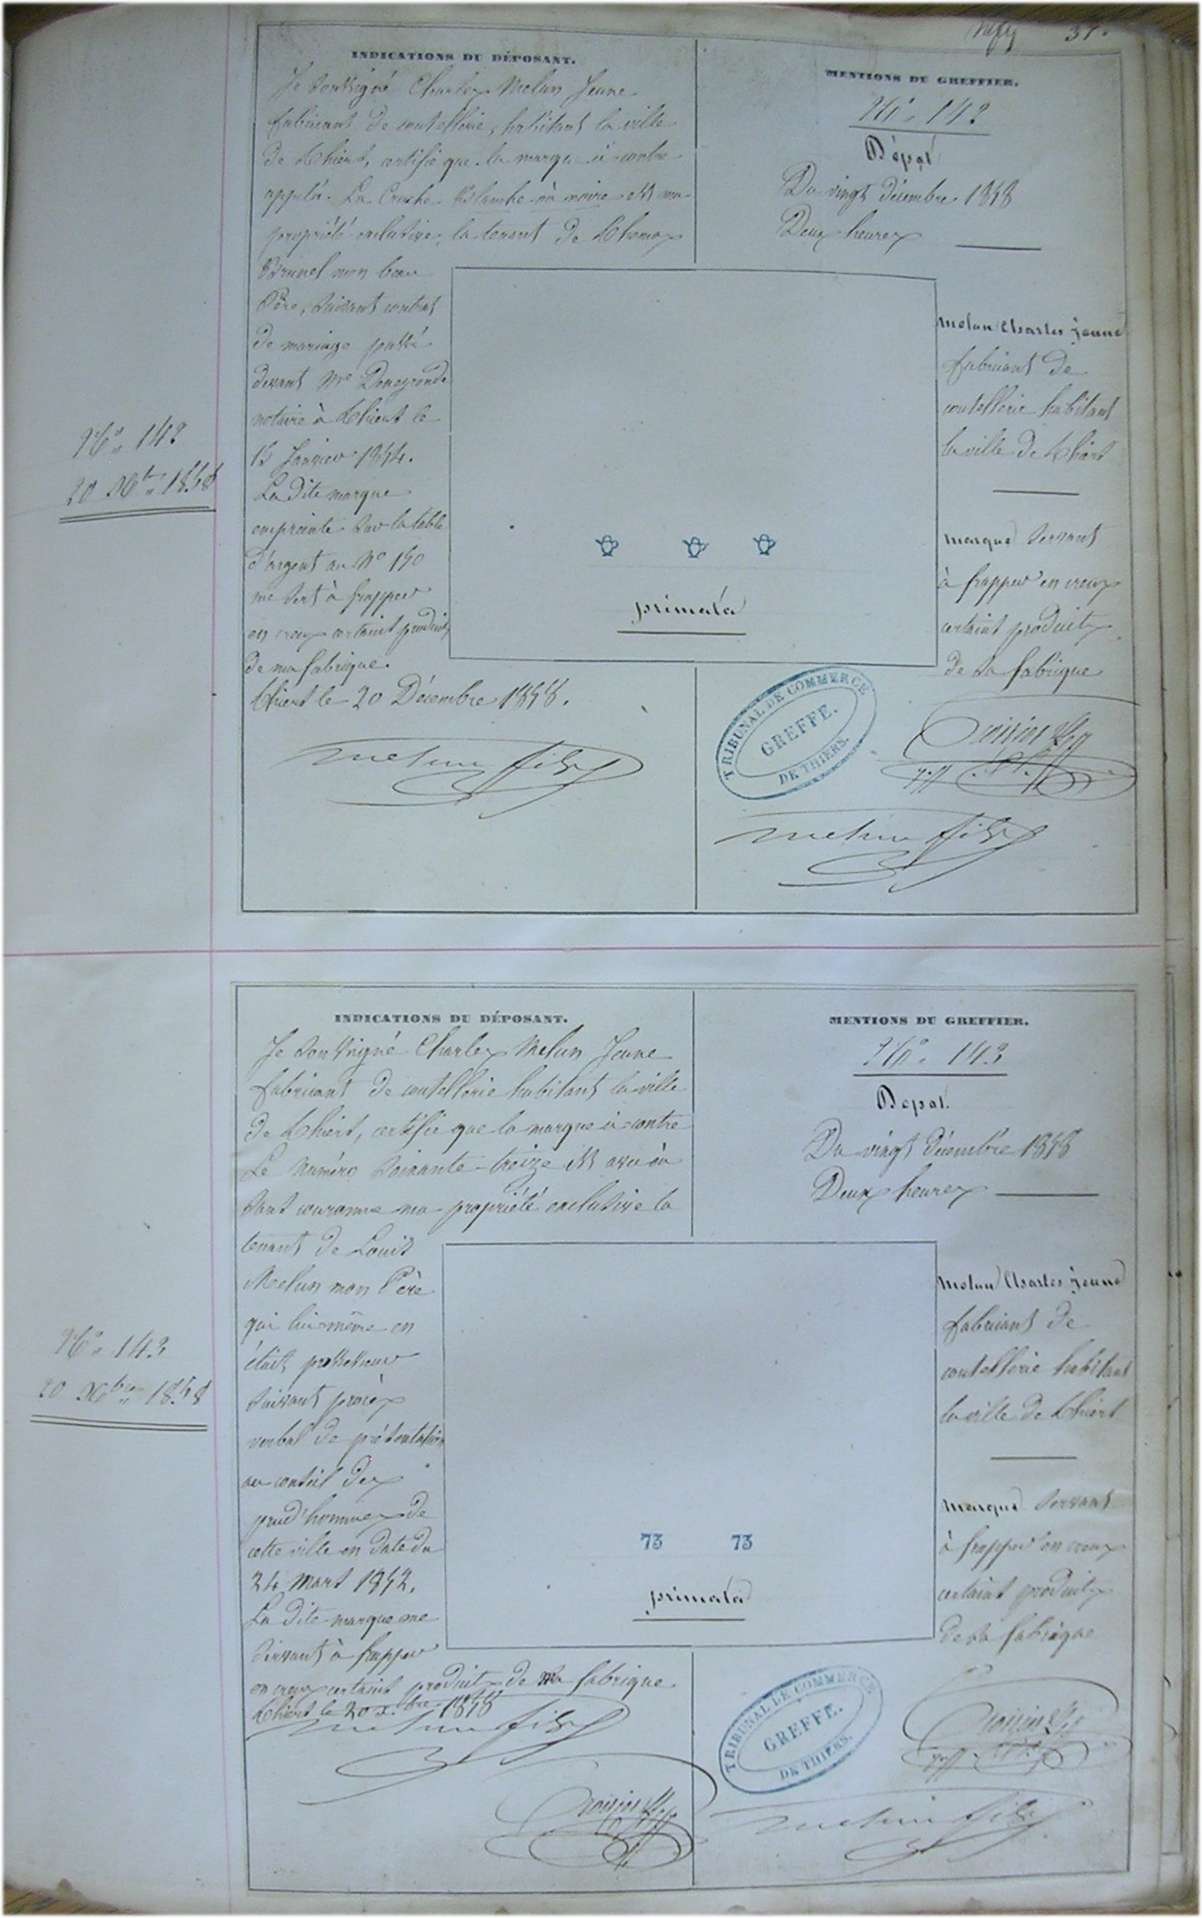 37.
INDICATIONS DU DÉPOSANT.
Je soussigné Charles Melun Jeune
fabricant de coutellerie, habitant la ville
de Thiers, certifie que la marque ci contre
appelée La Cruche Blanche ou noire est ma
propriété exclusive, la tenant de Thomas
Brunel mon beau
Père, suivant contrat
de mariage passé
devant Me
notaire à Thiers le
15 Janvier 1844.
La dite marque
empreinte sur la table
d'argent au No 150
me sert à frapper
en creux certains produits
de ma fabrique.
Thiers le 20 Décembre 1858.
Melun fils
MENTIONS DU GREFFIER.
No 142
Dépôt
Du vingt décembre 1858
Deux heures
Melun Charles jeune
fabricant de
coutellerie habitant
la ville de Thiers
marque servant
à frapper en creux
certains produits
de sa fabrique
primata
TRIBUNAL DE COMMERCE
GREFFE.
DE THIERS.
Melun fils
No 142
20 Xbre 1858
INDICATIONS DU DÉPOSANT.
Je soussigné Charles Melun Jeune
fabricant de coutellerie habitant la ville
de Thiers, certifie que la marque ci contre
Le numéro soixante-treize est avec ou
sans couronne ma propriété exclusive la
tenant de Louis
Melun mon Père
qui lui-même en
était possesseur
suivant procès
verbal de présentation
au conseil des
prud'hommes de
cette ville en date du
24 Mars 1842.
La dite marque me
servant à frapper
en creux certains produits de ma fabrique
Thiers le 20 Xbre 1858
Melun fils
MENTIONS DU GREFFIER.
No 143
Dépôt.
Du vingt décembre 1858
Deux heures
Melun Charles jeune
fabricant de
coutellerie habitant
la ville de Thiers
marque servant
à frapper en creux
certains produits
de sa fabrique
73 73
primata
TRIBUNAL DE COMMERCE
GREFFE.
DE THIERS.
Melun fils
No 143
20 Xbre 1858